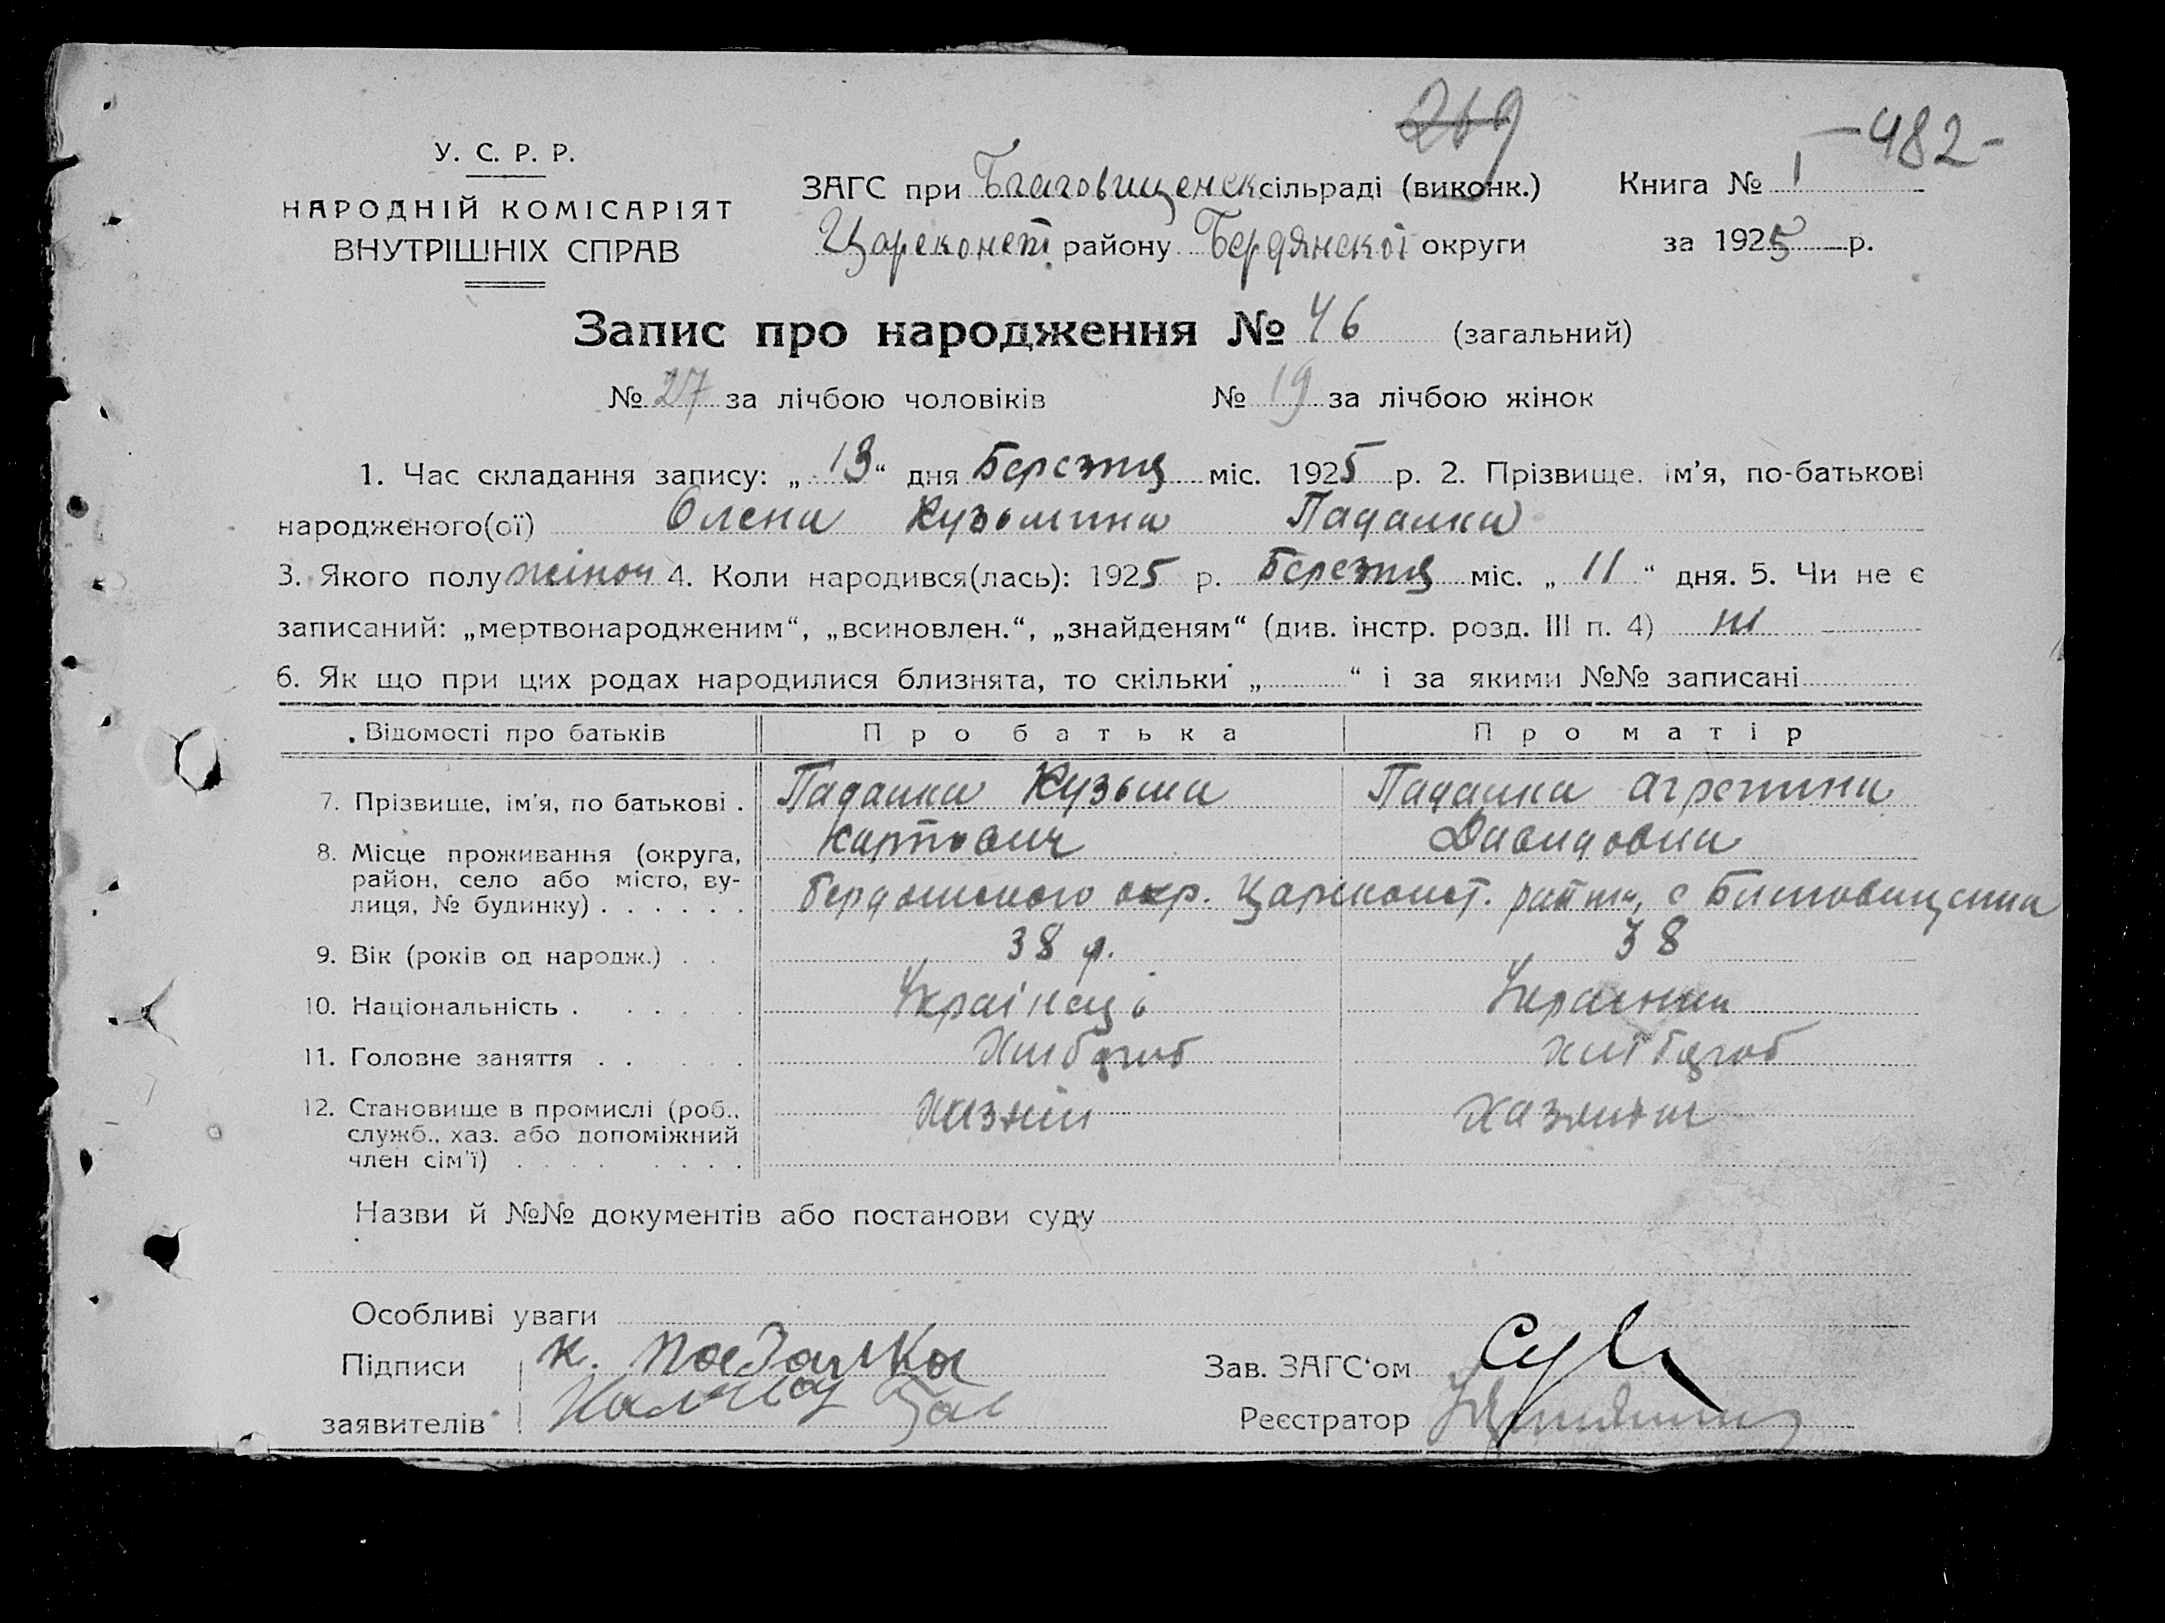 269
-482-
У. С. Р. Р.
НАРОДНІЙ КОМІСАРІЯТ
ВНУТРІШНІХ СПРАВ
ЗАГС при Благовищенск сільраді (виконк.)
Книга № 1
Цареконст. району Бердянскої округи
за 1925 р.
Запис про народження № 46 (загальний)
№ 27 за лічбою чоловіків № 19 за лічбою жінок
1. Час складання запису: „13“ дня Березня міс. 1925 р. 2. Прізвище, ім’я, по-батькові
народженого(ої) Олена Кузьмина Падалка
3. Якого полу жіноч 4. Коли народився(лась): 1925 р. Березня міс. „11“ дня. 5. Чи не є
записаний: „мертвонародженим“, „всиновлен.“, „знайденям“ (див. інстр. розд. III п. 4) ні
6. Як що при цих родах народилися близнята, то скільки „ “ і за якими №№ записані
Відомості про батьків Про батька Про матір
7. Прізвище, ім’я, по батькові . Падалка Кузьма Падалка Агрепина
Карпович Давидовна
8. Місце проживання (округа,
район, село або місто, ву-
лиця, № будинку) . . . . . . Бердянского окр. Цареконст. с
9. Вік (років од народж.) . . 38 р. 38
10. Національність . . . . . . Українець Украінка
11. Головне заняття . . . . Хлібороб Хлібороб
12. Становище в промислі (роб.,
служб., хаз. або допоміжний
член сім’ї) . . . . . . . . Хазяін Хазяйка
Назви й №№ документів або постанови суду
Особливі уваги
Підписи К. Падалка
Зав. ЗАГС‘ом
заявителів
Реєстратор